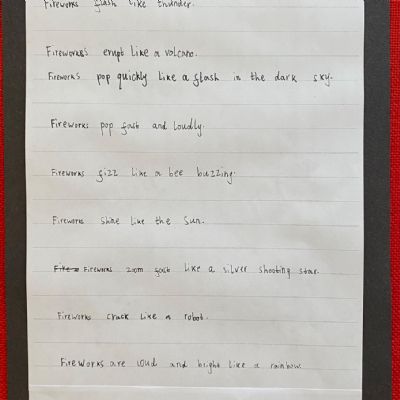 Fireworks flash like thunder.
Fireworks's erupt like a volcano.
Fireworks pop quickly like a flash in the dark sky.
Fireworks pop fast and loudly.
Fireworks fizz like a bee buzzing.
Fireworks shine like the sun.
Fireworks zoom fast like a silver shooting star.
Fireworks crack like a robot.
Fireworks are loud and bright like a rainbow.